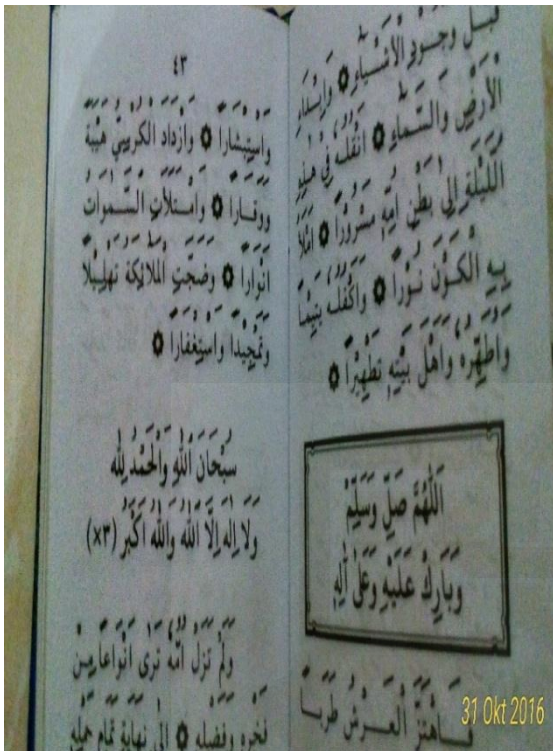 قَبْلَ وُجُودِ الْأَشْيَاءِ ۞ وَابْتِدَاءِ
الْأَرْضِ وَالسَّمَاءِ ۞ أَنْقُلُهُ فِي هٰذِهِ
اللَّيْلَةِ إِلَى بَطْنِ أُمِّهِ مَسْرُورًا ۞ أَمْلَأُ
بِهِ الْكَوْنَ نُورًا ۞ وَأَكْفُلُهُ يَتِيمًا
وَأُطَهِّرُهُ وَأَهْلَ بَيْتِهِ تَطْهِيرًا ۞
اَللّٰهُمَّ صَلِّ وَسَلِّمْ
وَبَارِكْ عَلَيْهِ وَعَلَى آلِهِ
فَاهْتَزَّ الْعَرْشُ طَرَبًا
٤٣
وَاسْتِبْشَارًا ۞ وَازْدَادَ الْكُرْسِيُّ هَيْبَةً
وَوَقَارًا ۞ وَامْتَلَأَتِ السَّمٰوَاتُ
أَنْوَارًا ۞ وَضَجَّتِ الْمَلَائِكَةُ تَهْلِيلًا
وَتَمْجِيدًا وَاسْتِغْفَارًا ۞
سُبْحَانَ اللّٰهِ وَالْحَمْدُ لِلّٰهِ
وَلَا إِلٰهَ إِلَّا اللّٰهُ وَاللّٰهُ أَكْبَرُ (×٣)
وَلَمْ تَزَلْ أُمُّهُ تَرَى أَنْوَاعًا مِنْ
فَخْرِهِ وَفَضْلِهِ ۞ إِلَى نِهَايَةِ تَمَامِ حَمْلِهِ
31 Okt 2016